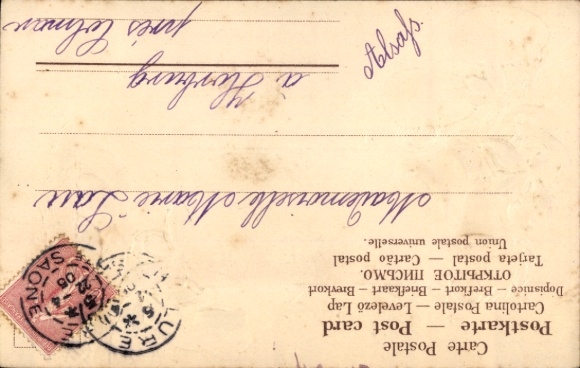 Carte Postale
Postkarte — Post card
Cartolina Postale — Levelező Lap
Dopisnice — Brefkort — Briefkaart — Brevkort
ОТКРЫТОЕ ПИСЬМО.
Tarjeta postal — Cartão postal
Union postale universelle.
LURE
SAONE
Mademoiselle Marie
à Horburg
près Colmar
Alsass.